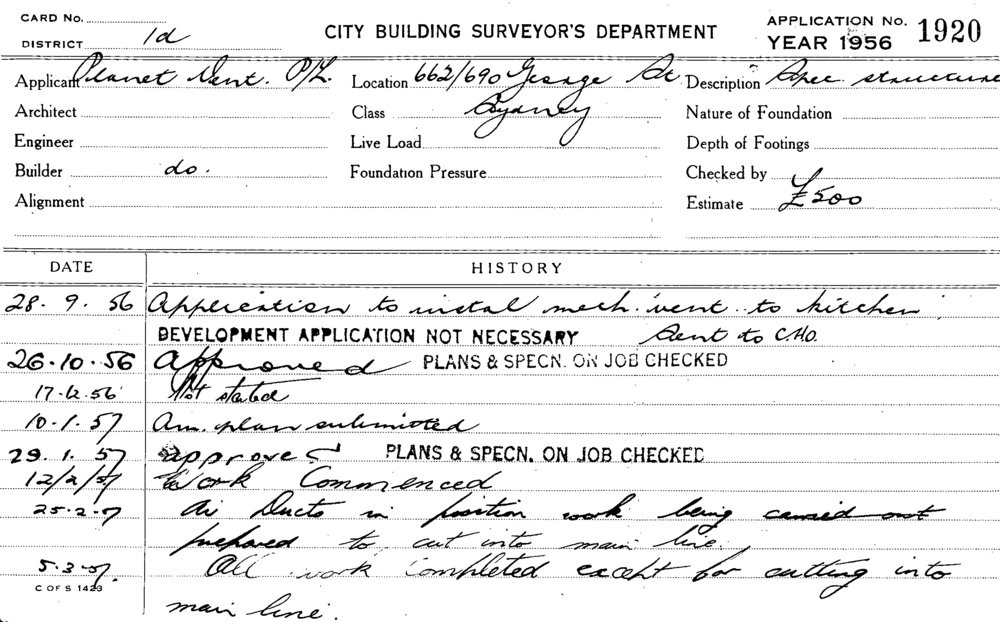 CARD No.
DISTRICT 1d
CITY BUILDING SURVEYOR'S DEPARTMENT
APPLICATION No. 1920
YEAR 1956
Applicant Planet Vent. P/L. Location 662/690 George St Description Spec. structure
Architect Class Sydney Nature of Foundation
Engineer Live Load Depth of Footings
Builder do. Foundation Pressure Checked by
Alignment Estimate £500
DATE HISTORY
28. 9. 56 Application to instal mech. vent. to kitchen.
DEVELOPMENT APPLICATION NOT NECESSARY Sent to C.H.O.
26.10.56 Approved PLANS & SPECN. ON JOB CHECKED
17.12.56 Not started
10.1.57 Am. plan submitted
29.1.57 approved PLANS & SPECN. ON JOB CHECKED
12/2/57 Work Commenced
25.2.57 Air Ducts in position work being carried out
prepared to cut into main line.
5.3.57. All work completed except for cutting into
C OF S 1423
main line.